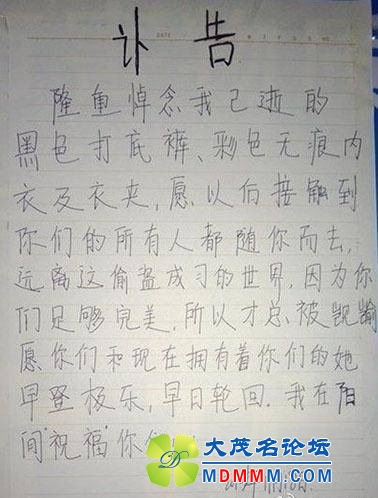 讣告
隆重悼念我已逝的
黑色打底裤、彩色无痕内
衣及衣夹,愿以后接触到
你们的所有人都随你而去,
远离这偷盗成习的世界,因为你
们足够完美,所以才总被觊觎
愿你们和现在拥有着你们的她
早登极乐,早日轮回.我在阳
间"祝福"你们!
大茂名论坛
MDMMM.COM